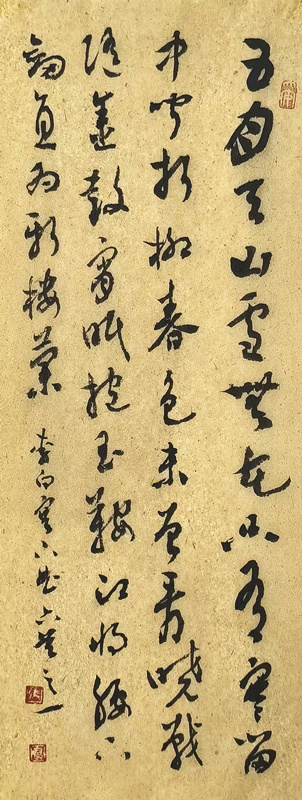 五月天山雪無花只有寒笛
中聞折柳春色未曾看曉戰
隨金鼓宵眠抱玉鞍願將腰下
劍直為斬樓蘭 李白塞下曲六首之一